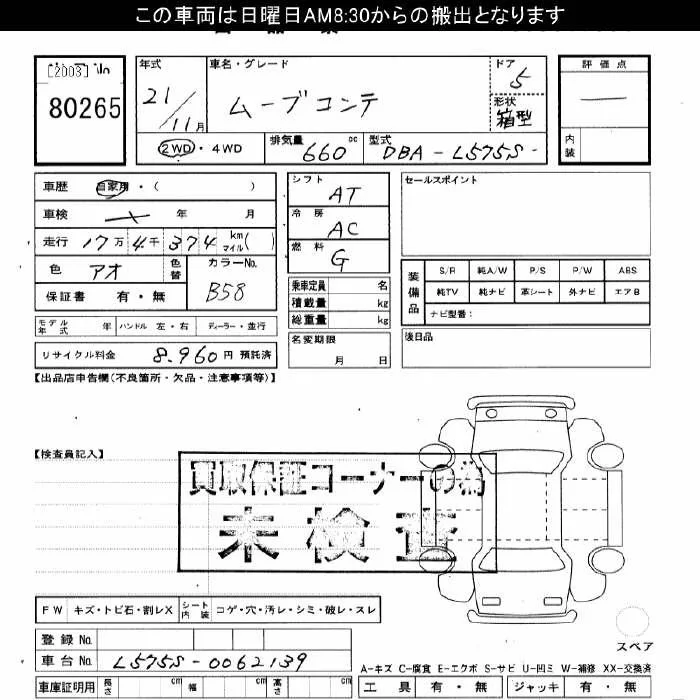 この車両は日曜日AM8:30からの搬出となります
[2003]
80265
年式
21/11月
車名・グレード
ムーブコンテ
ドア
5
形状
箱型
評価点
内装
2WD・4WD
排気量 660 cc
型式 DBA-L575S-
車歴 自家用・( )
車検 年 月
走行 17万4千374 kmマイル( )
色 アオ
色替
カラーNo.
B58
保証書 有・無
シフト AT
冷房 AC
燃料 G
乗車定員 名
積載量 kg
総重量 kg
名変期限
月 日
セールスポイント
装備品
S/R 純A/W P/S P/W ABS
純TV 純ナビ 革シート 外ナビ エアB
ナビ型番:
後日品
モデル年式 年 ハンドル 左・右 ディーラー・並行
リサイクル料金 8,960円 預託済
【出品店申告欄(不良箇所・欠品・注意事項等)】
【検査員記入】
買取保証コーナーの為
未検査
FW キズ・トビ石・割レX シート内装 コゲ・穴・汚レ・シミ・破レ・スレ
スペア
登録No.
車台No. L575S-0062139
A-キズ C-腐食 E-エクボ S-サビ U-凹ミ W-補修 XX-交換済
車庫証明用 長さ cm 幅 cm 高さ cm 工具 有・無 ジャッキ 有・無